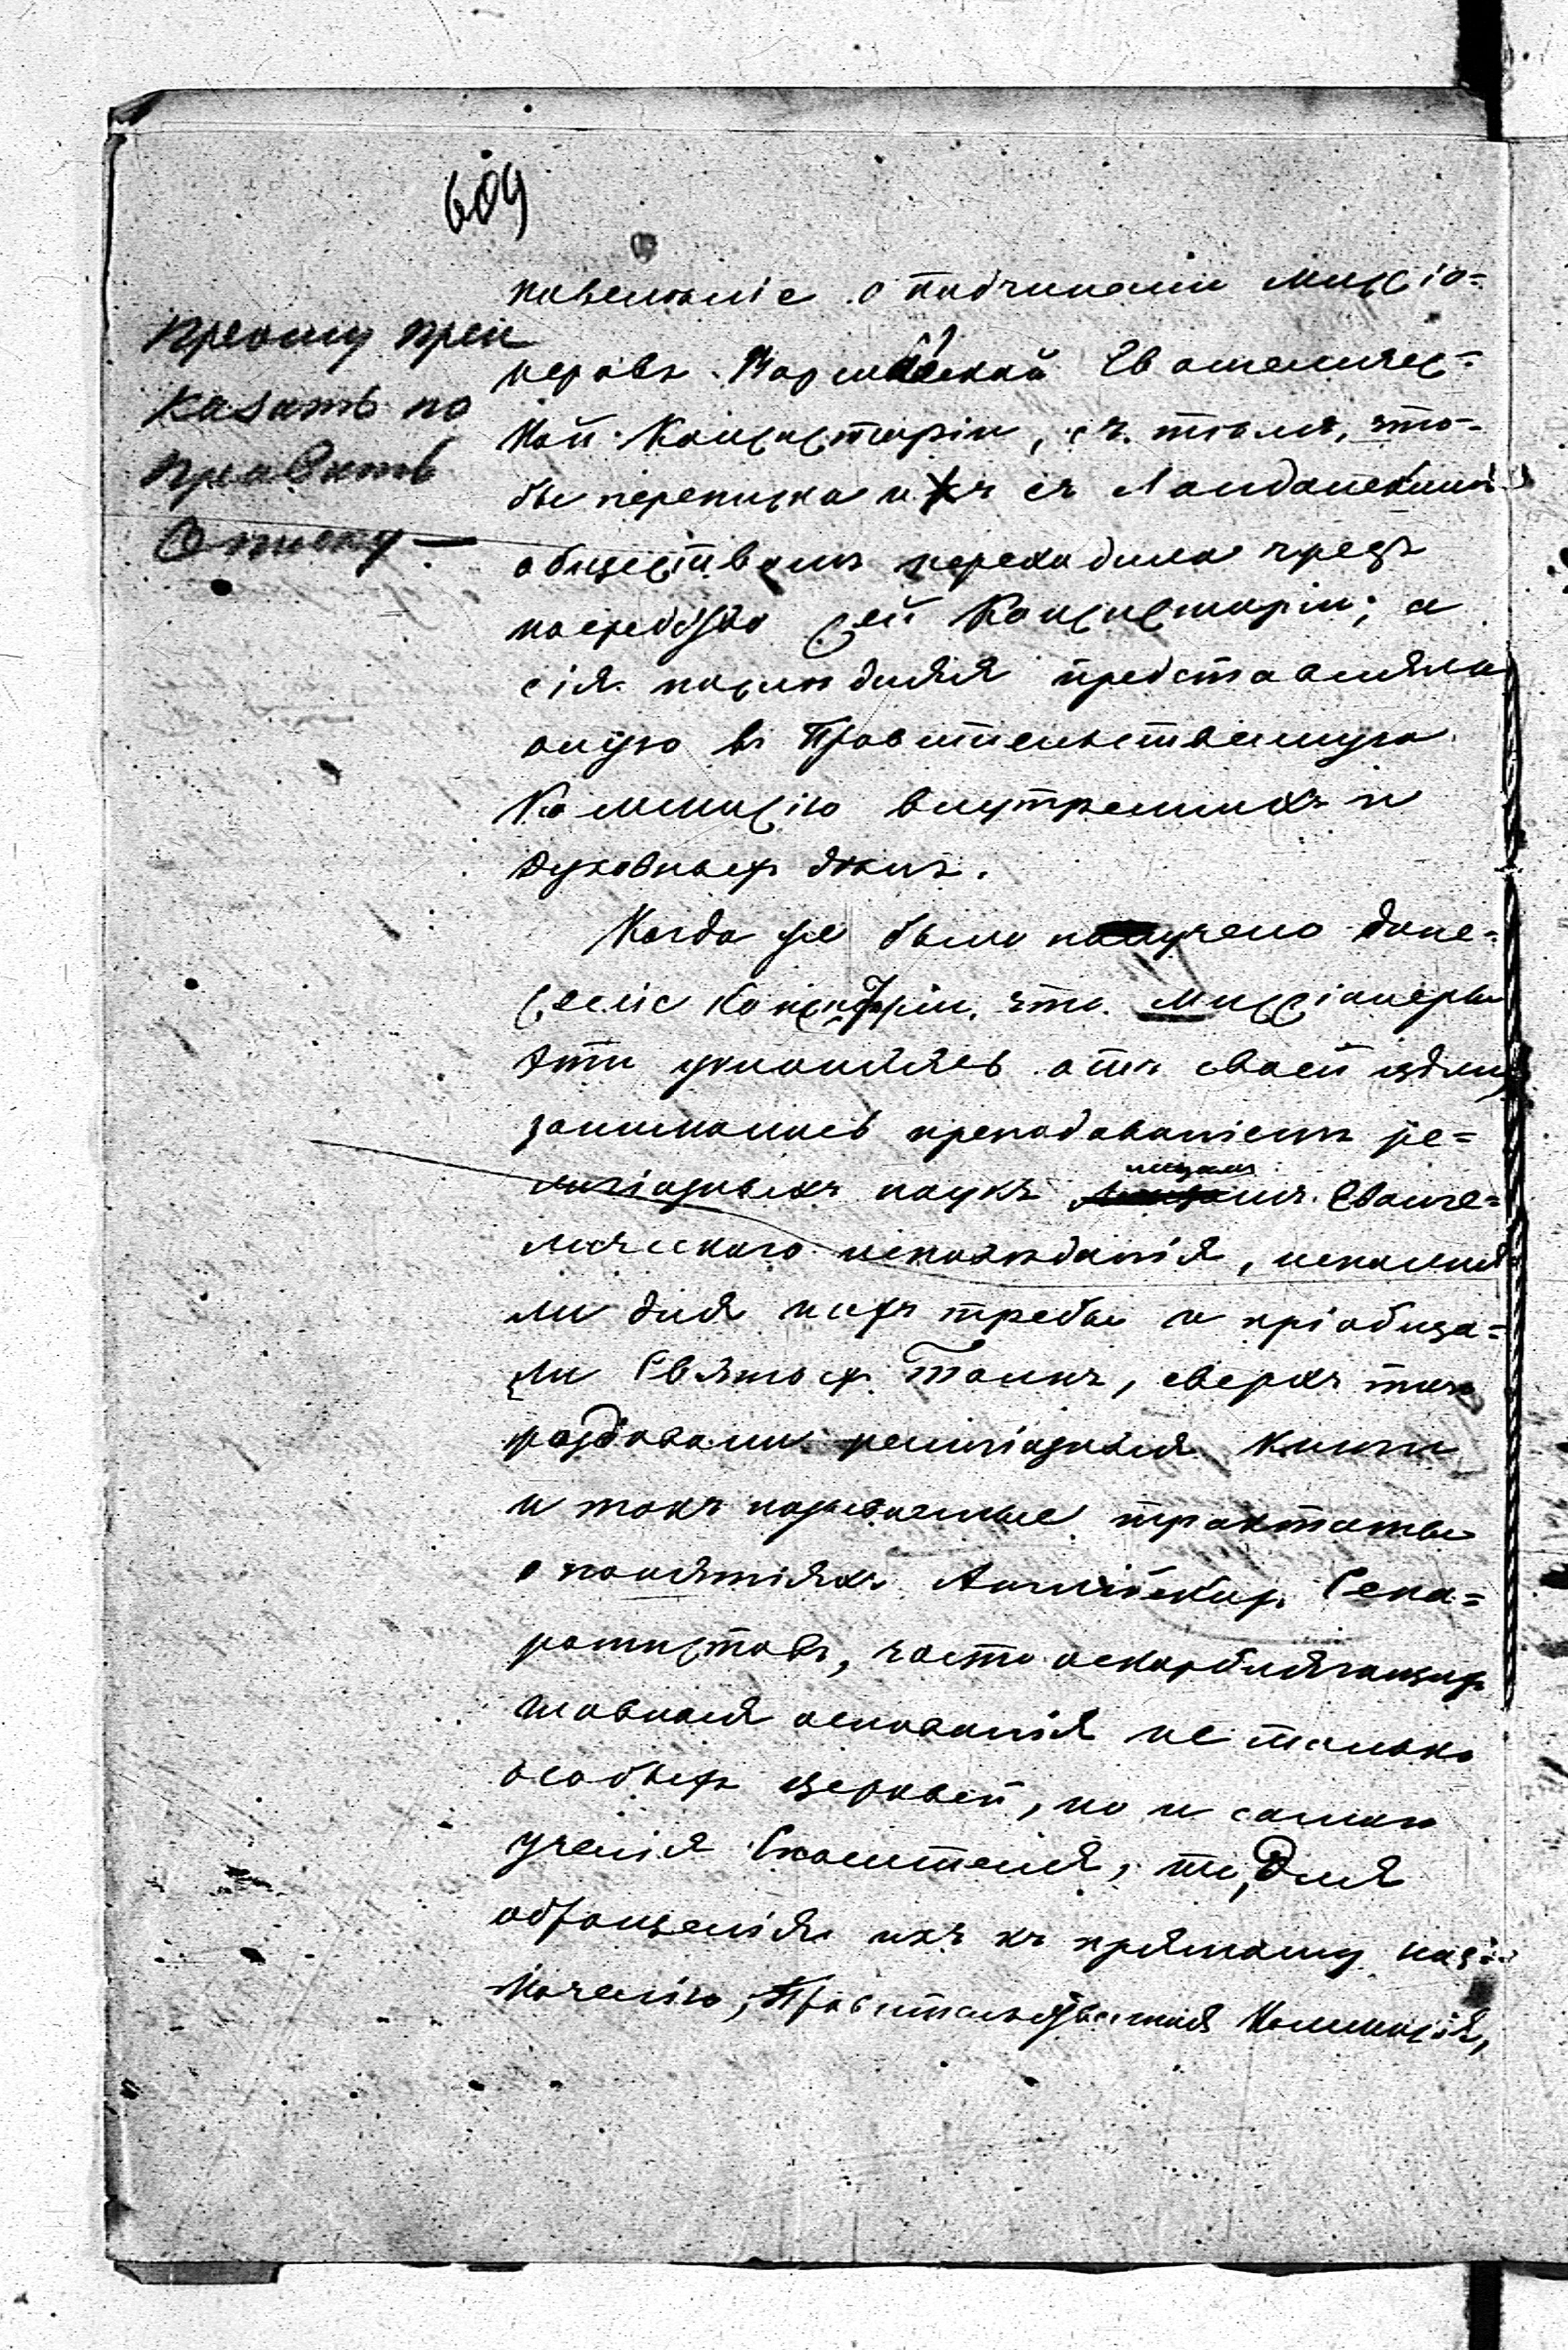 609
Прошу прик
казать по
править
Описку —
повеленіе о подчиненіи Миссіо=
неровъ Варшавской Евангеличес=
кой Консисторіи, съ тѣмъ, что=
бы переписка ихъ съ Лондонскимъ
обществомъ переходила чрезъ
посредство сей Консисторіи; а
сія послѣдняя представляла
оную въ Правительственную
Коммисію внутреннихъ и
Духовныхъ дѣлъ.
Когда же было получено доне=
сеніе Консисторіи, что Миссіонеры
эти уклоняясь отъ своей цѣли,
занимались преподаваніемъ ре=
лигіозныхъ наукъ лицамъ Еванге=
лическаго исповѣданія, исполня
ли для нихъ требы и пріобща=
ли Святыхъ Таинъ, сверхъ того
раздавали религіозныя книги
и такъ называемые трактаты
о понятіяхъ Англійскихъ Сепа=
ратистовъ, часто оскорбляющихъ
главныя основанія не только
особыхъ церквей, но и самаго
ученія Спасителя, то, для
обращенія ихъ къ прямому наз=
наченію, Правительственная Коммисія,